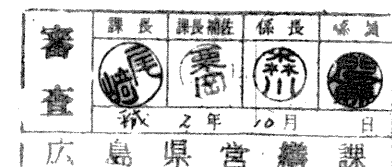 審査
課長 課長補佐 係長 係員
尾崎 栗岡 森川
2年 10月 日
広島県営繕課